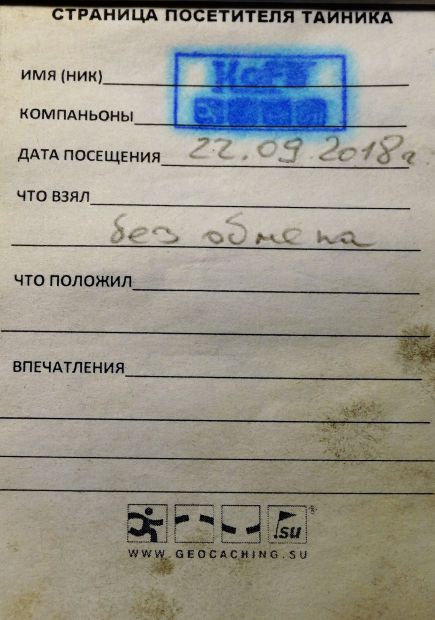 СТРАНИЦА ПОСЕТИТЕЛЯ ТАЙНИКА
ИМЯ (НИК)
КОМПАНЬОНЫ
ДАТА ПОСЕЩЕНИЯ 22.09.2018г
ЧТО ВЗЯЛ
без обмена
ЧТО ПОЛОЖИЛ
ВПЕЧАТЛЕНИЯ
.su
WWW.GEOCACHING.SU